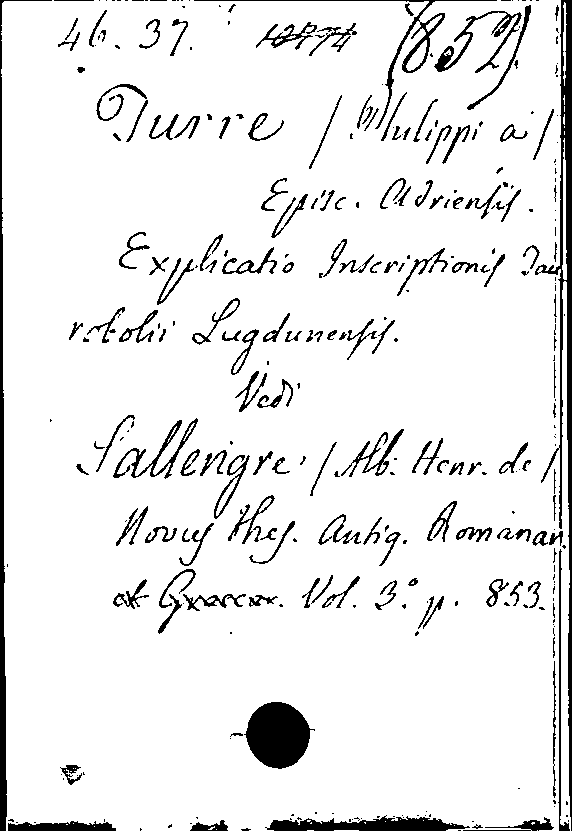 46. 37. (852)
Turre / Philippi a /
Episc. Adriensis.
Explicatio Inscriptionis Tau
robolii Lugdunensis.
Vedi
Sallengre / Alb. Henr. de /
Novus thes. Antiq. Romanar.
et Graecar. Vol. 3.º p. 853.